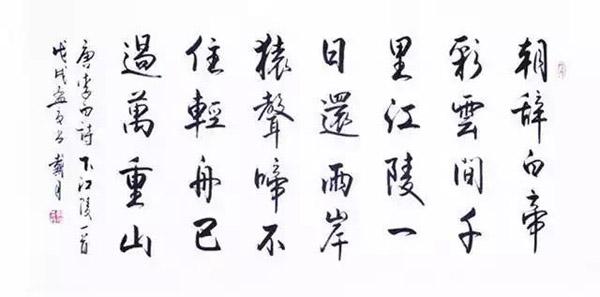 朝辞白帝
彩雲間千
里江陵一
日還兩岸
猿聲啼不
住輕舟已
過萬重山
唐李白詩下江陵一首
戊戌孟夏書戴月